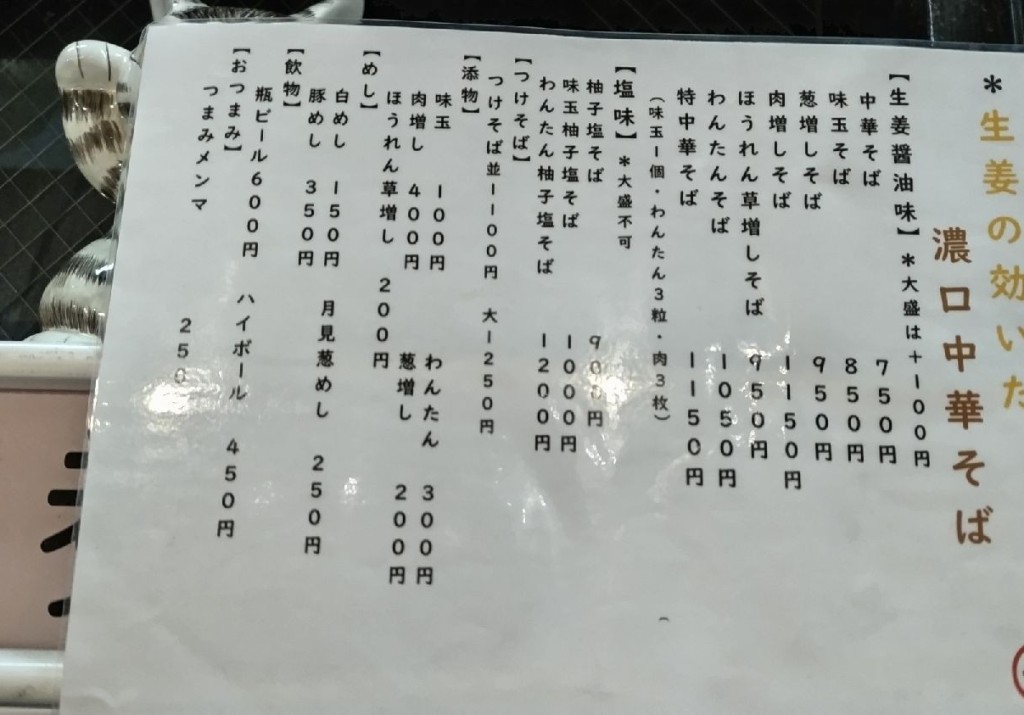 *生姜の効いた
濃口中華そば
【生姜醤油味】*大盛は+100円
中華そば 750円
味玉そば 850円
葱増しそば 950円
肉増しそば 1150円
ほうれん草増しそば 950円
わんたんそば 1050円
特中華そば 1150円
(味玉1個・わんたん3粒・肉3枚)
【塩味】*大盛不可
柚子塩そば 900円
味玉柚子塩そば 1000円
わんたん柚子塩そば 1200円
【つけそば】
つけそば並1100円 大1250円
【添物】
味玉 100円 わんたん 300円
肉増し 400円 葱増し 200円
ほうれん草増し 200円
【めし】
白めし 150円 月見葱めし 250円
豚めし 350円
【飲物】
瓶ビール600円 ハイボール 450円
【おつまみ】
つまみメンマ 250